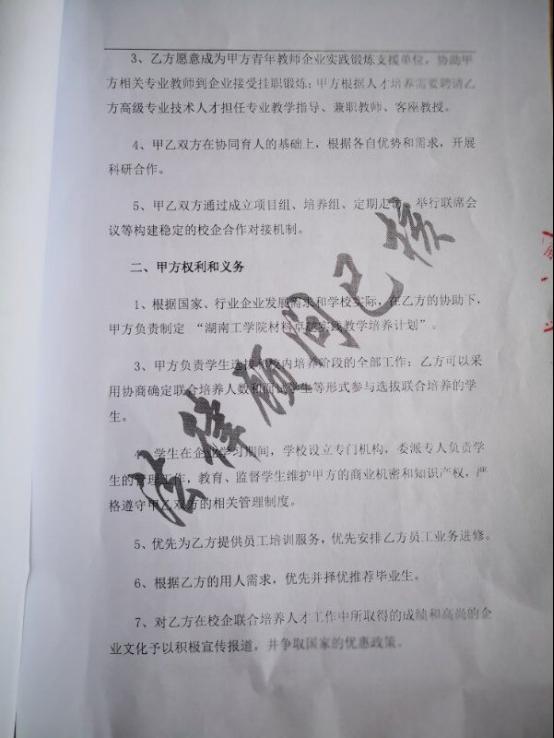 3、乙方愿意成为甲方青年教师企业实践锻炼支援单位，协助甲
方相关专业教师到企业接受挂职锻炼；甲方根据人才培养需要聘请乙
方高级专业技术人才担任专业教学指导、兼职教师、客座教授。
4、甲乙双方在协同育人的基础上，根据各自优势和需求，开展
科研合作。
5、甲乙双方通过成立项目组、培养组、定期走访、举行联席会
议等构建稳定的校企合作对接机制。
二、甲方权利和义务
1、根据国家、行业企业发展需求和学校实际，在乙方的协助下，
甲方负责制定 “湖南工学院材料卓越实践教学培养计划”。
3、甲方负责学生选拔和校内培养阶段的全部工作；乙方可以采
用协商确定联合培养人数和面试学生等形式参与选拔联合培养的学
生。
4、学生在企业学习期间，学校设立专门机构，委派专人负责学
生的管理工作，教育、监督学生维护甲方的商业机密和知识产权，严
格遵守甲乙双方的相关管理制度。
5、优先为乙方提供员工培训服务，优先安排乙方员工业务进修。
6、根据乙方的用人需求，优先并择优推荐毕业生。
7、对乙方在校企联合培养人才工作中所取得的成绩和高尚的企
业文化予以积极宣传报道，并争取国家的优惠政策。
法律顾问已核